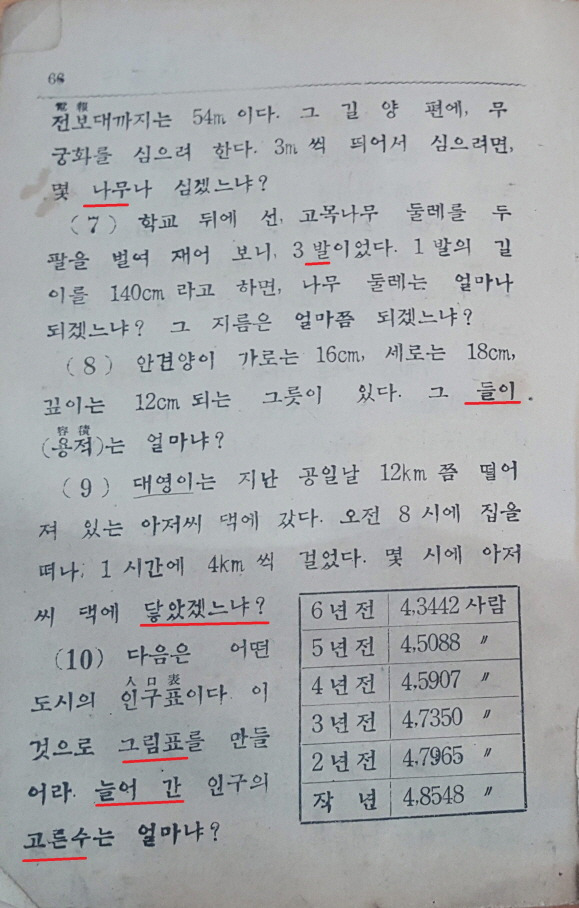 68
電報
전보대까지는 54m 이다. 그 길 양 편에, 무
궁화를 심으려 한다. 3m 씩 띄어서 심으려면,
몇 나무나 심겠느냐?
(7) 학교 뒤에 선, 고목나무 둘레를 두
팔을 벌여 재어 보니, 3 발이었다. 1 발의 길
이를 140cm 라고 하면, 나무 둘레는 얼마나
되겠느냐? 그 지름은 얼마쯤 되겠느냐?
(8) 안견양이 가로는 16cm, 세로는 18cm,
깊이는 12cm 되는 그릇이 있다. 그 들이
容積
(용적)는 얼마냐?
(9) 대영이는 지난 공일날 12km 쯤 떨어
져 있는 아저씨 댁에 갔다. 오전 8 시에 집을
떠나, 1 시간에 4km 씩 걸었다. 몇 시에 아저
씨 댁에 닿았겠느냐?
(10) 다음은 어떤
人口表
도시의 인구표이다. 이
것으로 그림표를 만들
어라. 늘어 간 인구의
고른수는 얼마냐?
6 년 전 4,3442 사람
5 년 전 4,5088 〃
4 년 전 4,5907 〃
3 년 전 4,7350 〃
2 년 전 4,7965 〃
작 년 4,8548 〃